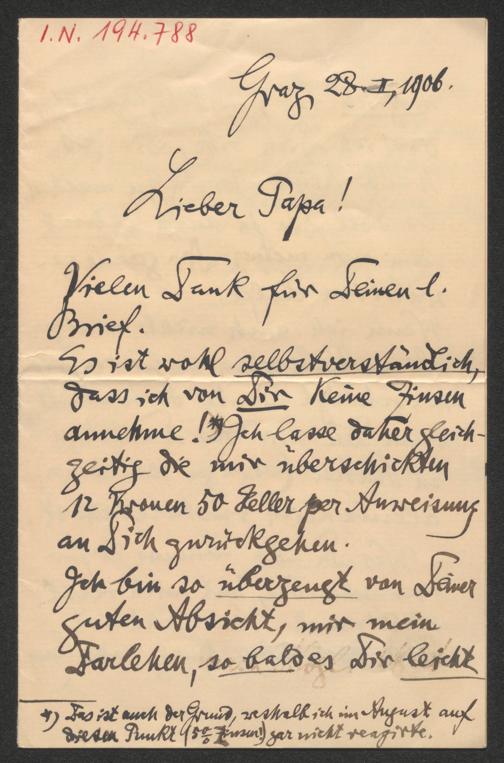 I.N. 194.788
Graz, 28. I, 1906.
Lieber Papa!
Vielen Dank für Deinen l.
Brief.
Es ist wohl selbstverständlich,
dass ich von Dir keine Zinsen
annehme! *) Ich lasse daher gleich-
zeitig die mir überschickten
12 Kronen 50 Heller per Anweisung
an Dich zurückgehen.
Ich bin so überzeugt von Deiner
guten Absicht, mir mein
Darlehen, so bald es Dir leicht
*) Das ist auch der Grund, weshalb ich im August auf
diesen Punkt (5% Zinsen!) gar nicht reagirte.